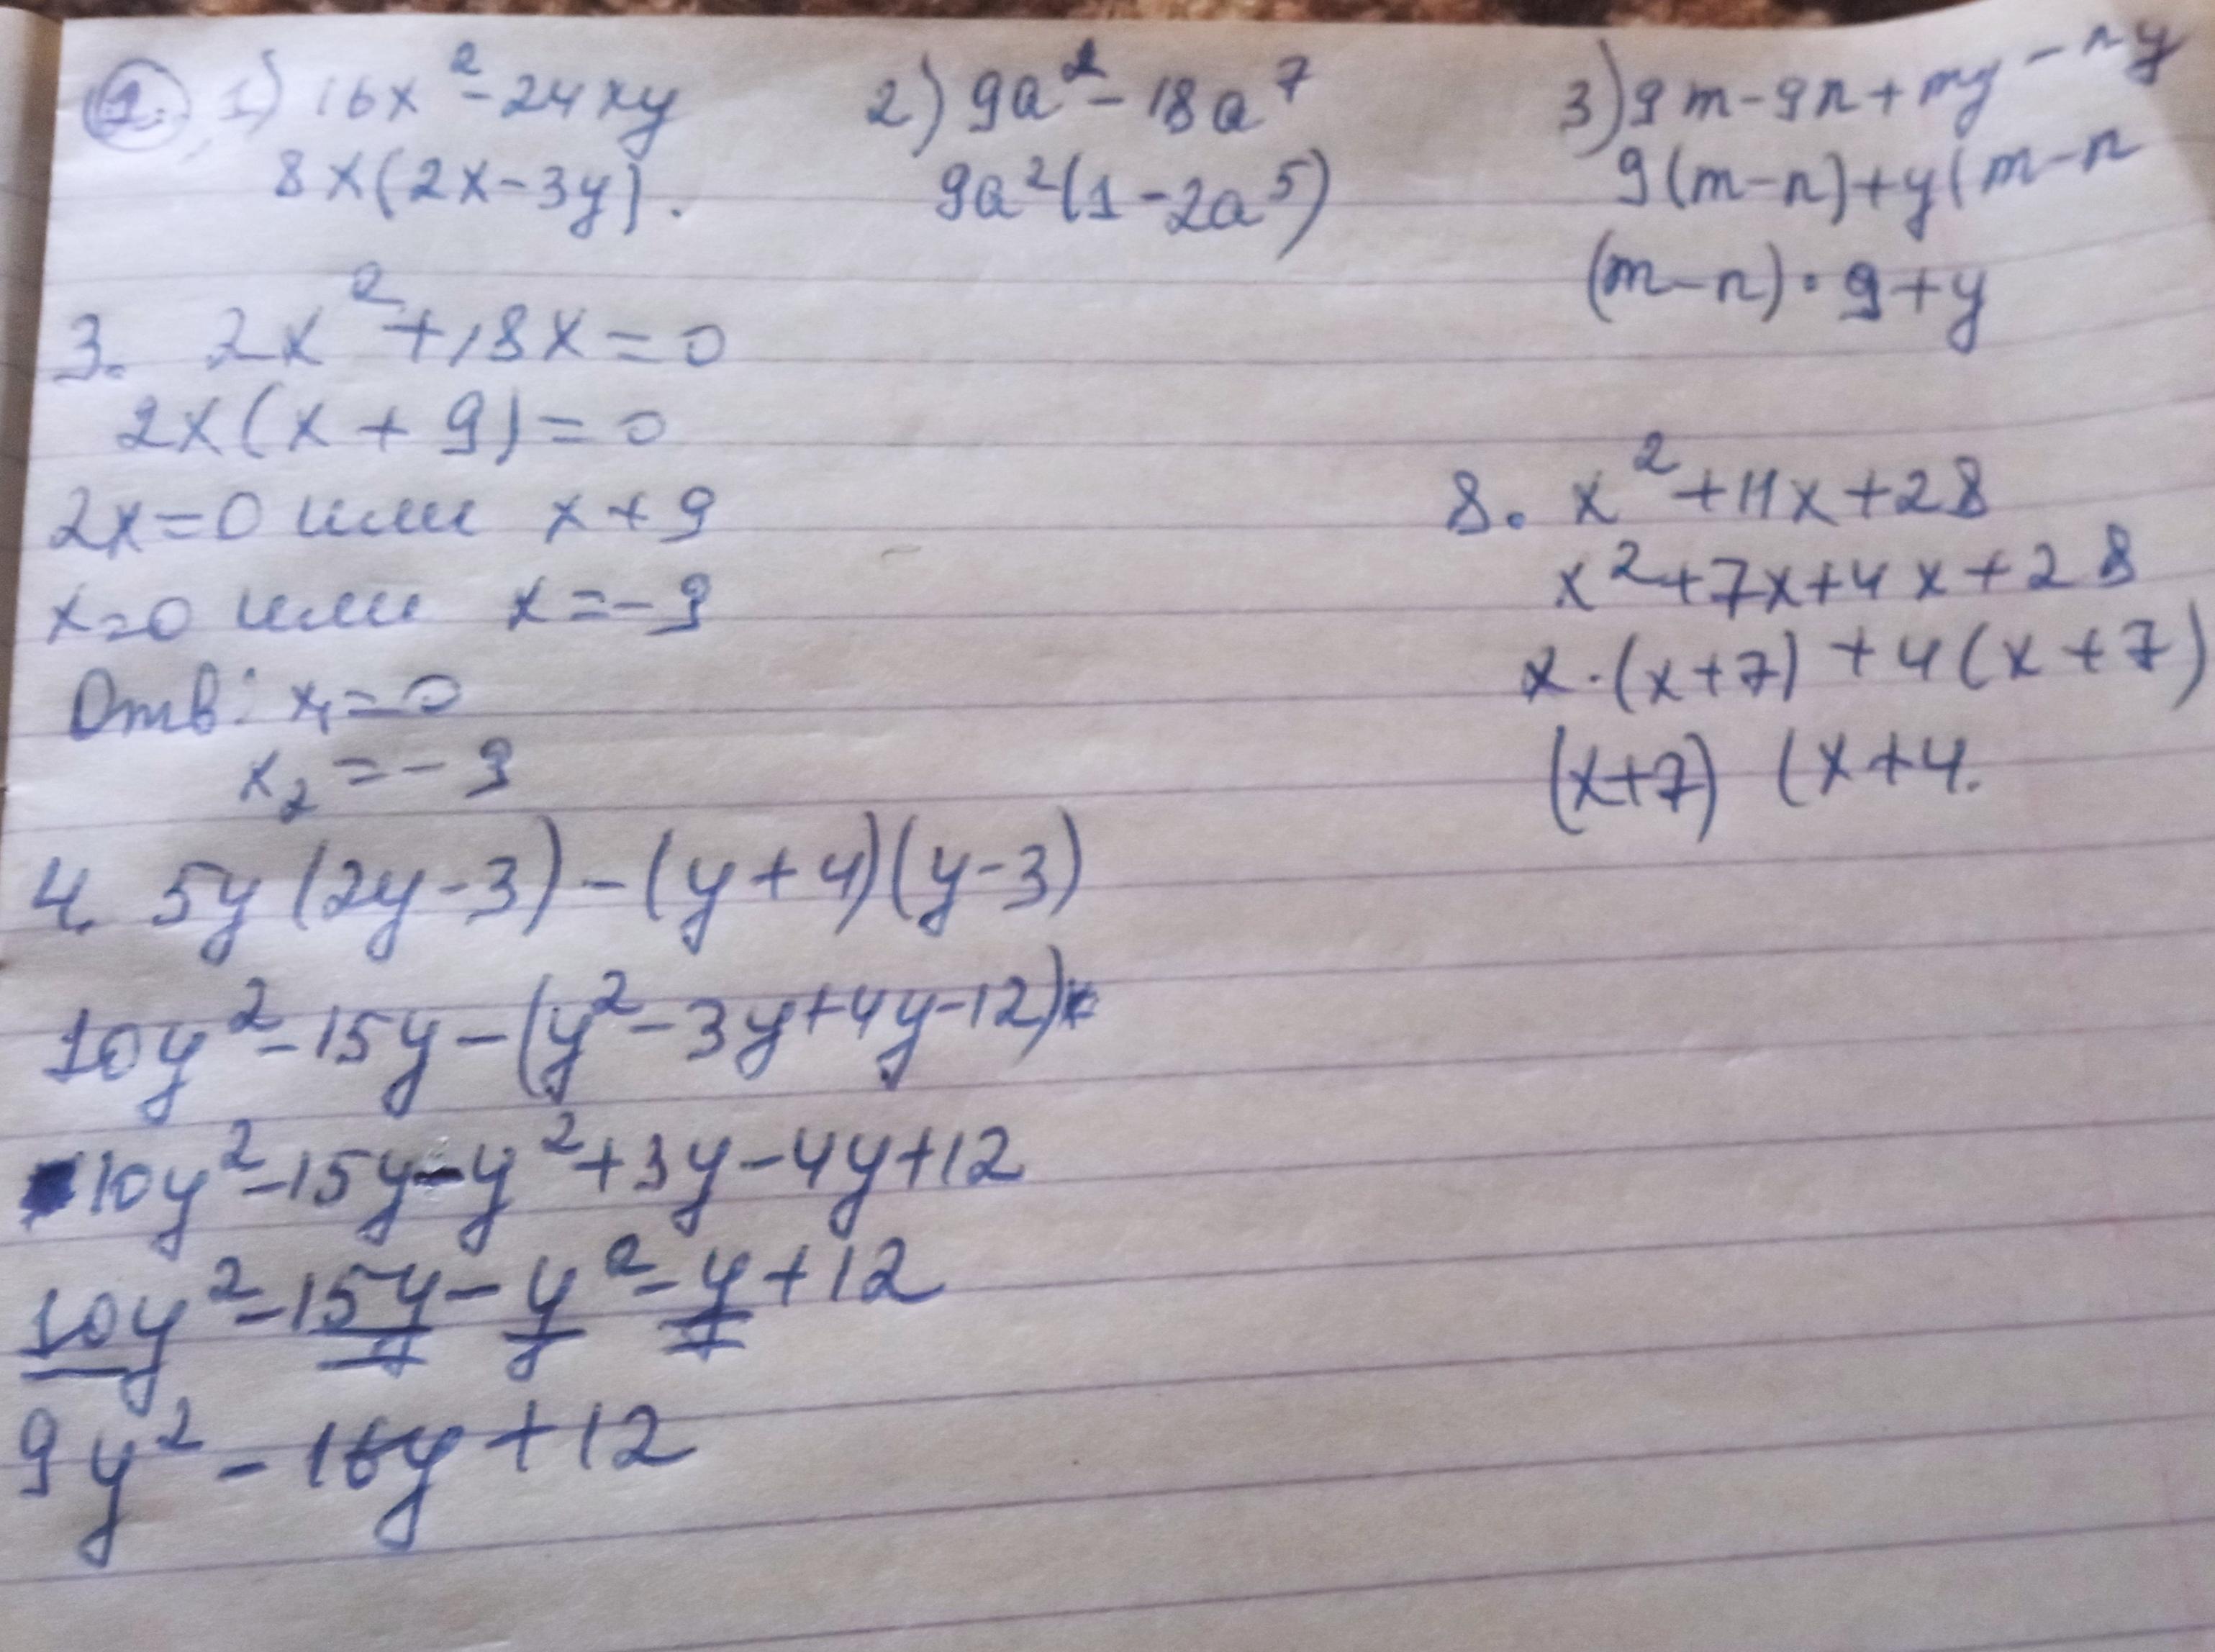 1. 1) 16x² - 24xy
8x(2x - 3y).
2) 9a² - 18a⁷
9a²(1 - 2a⁵)
3) 9m - 9n + my - ny
9(m - n) + y(m - n
(m - n) · 9 + y
3. 2x² + 18x = 0
2x(x + 9) = 0
2x = 0 или x + 9
x = 0 или x = -9
Отв: x₁ = 0
x₂ = -9
8. x² + 11x + 28
x² + 7x + 4x + 28
x · (x + 7) + 4(x + 7)
(x + 7) (x + 4.
4. 5y(2y - 3) - (y + 4)(y - 3)
10y² - 15y - (y² - 3y + 4y - 12)
10y² - 15y - y² + 3y - 4y + 12
10y² - 15y - y² - y + 12
9y² - 16y + 12